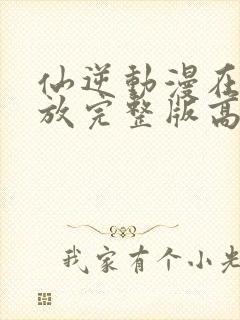 仙逆動漫在
放完整版高
我家有个小先